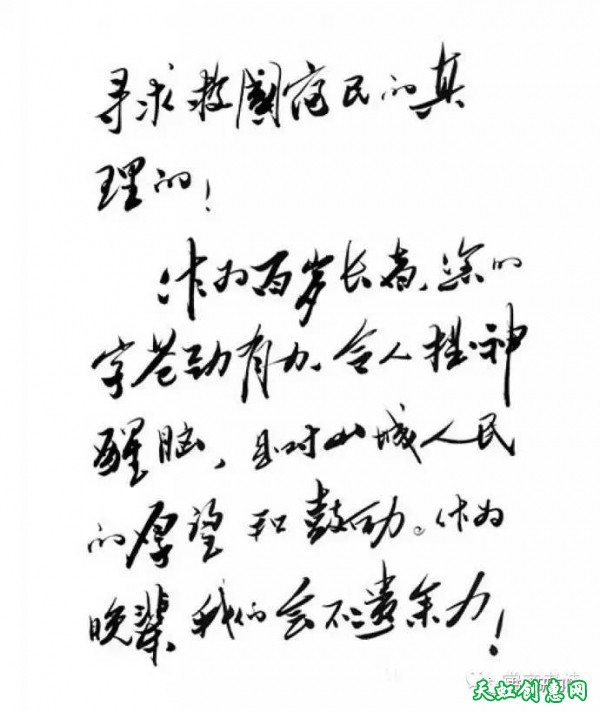 寻求救國富民的真
理的！
作为百岁长者，的
字苍劲有力、令人提神
醒脑，是对山城人民
的厚望和鼓励。作为
晚辈，我们会不遗余力！
天虹创意网